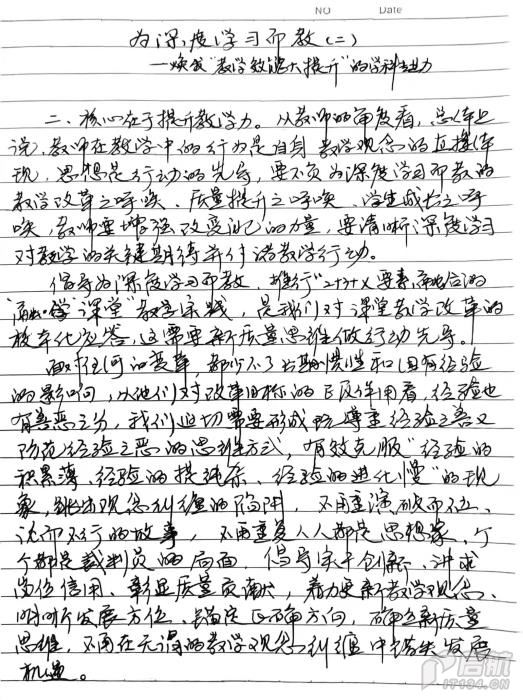 NO Date
为深度学习而教(二)
—焕发"教学效能大提升"的学科生命力
二、核心在于提升教学力。从教师的角度看,总体上
说,教师在教学中的行为是自身教学观念的直接体
现,思想是行动的先导,要不负为深度学习而教的
教学改革之呼唤、质量提升之呼唤、学生成长之呼
唤,教师要增强改变自己的力量,要清晰深度学习
对教学的关键期待并付诸教学行动。
倡导为深度学习而教,推行"2+3+X要素融合的
"融·学"课堂"教学实践,是我们对课堂教学改革的
校本化应答,这需要新质量思维做行动先导。
面对任何的变革,都少不了长期惯性和固有经验
的影响,从他们对改革目标的正反作用看,经验也
有善恶之分,我们迫切需要形成既尊重经验之善又
防范经验之恶的思维方式,有效克服"经验的
积累薄、经验的提纯杂、经验的进化慢"的现
象,跳出观念纠缠的陷阱,不再重演破而不立、
说而不行的故事,不再重复人人都是思想家、个
个都是裁判员的局面,倡导实干创新、讲求
岗位信用、彰显质量贡献,着力更新教学观念、
明晰发展方位、锚定正确方向,确立新质量
思维,不再在无谓的教学观念纠缠中错失发展
机遇。
启航
IT134.CN